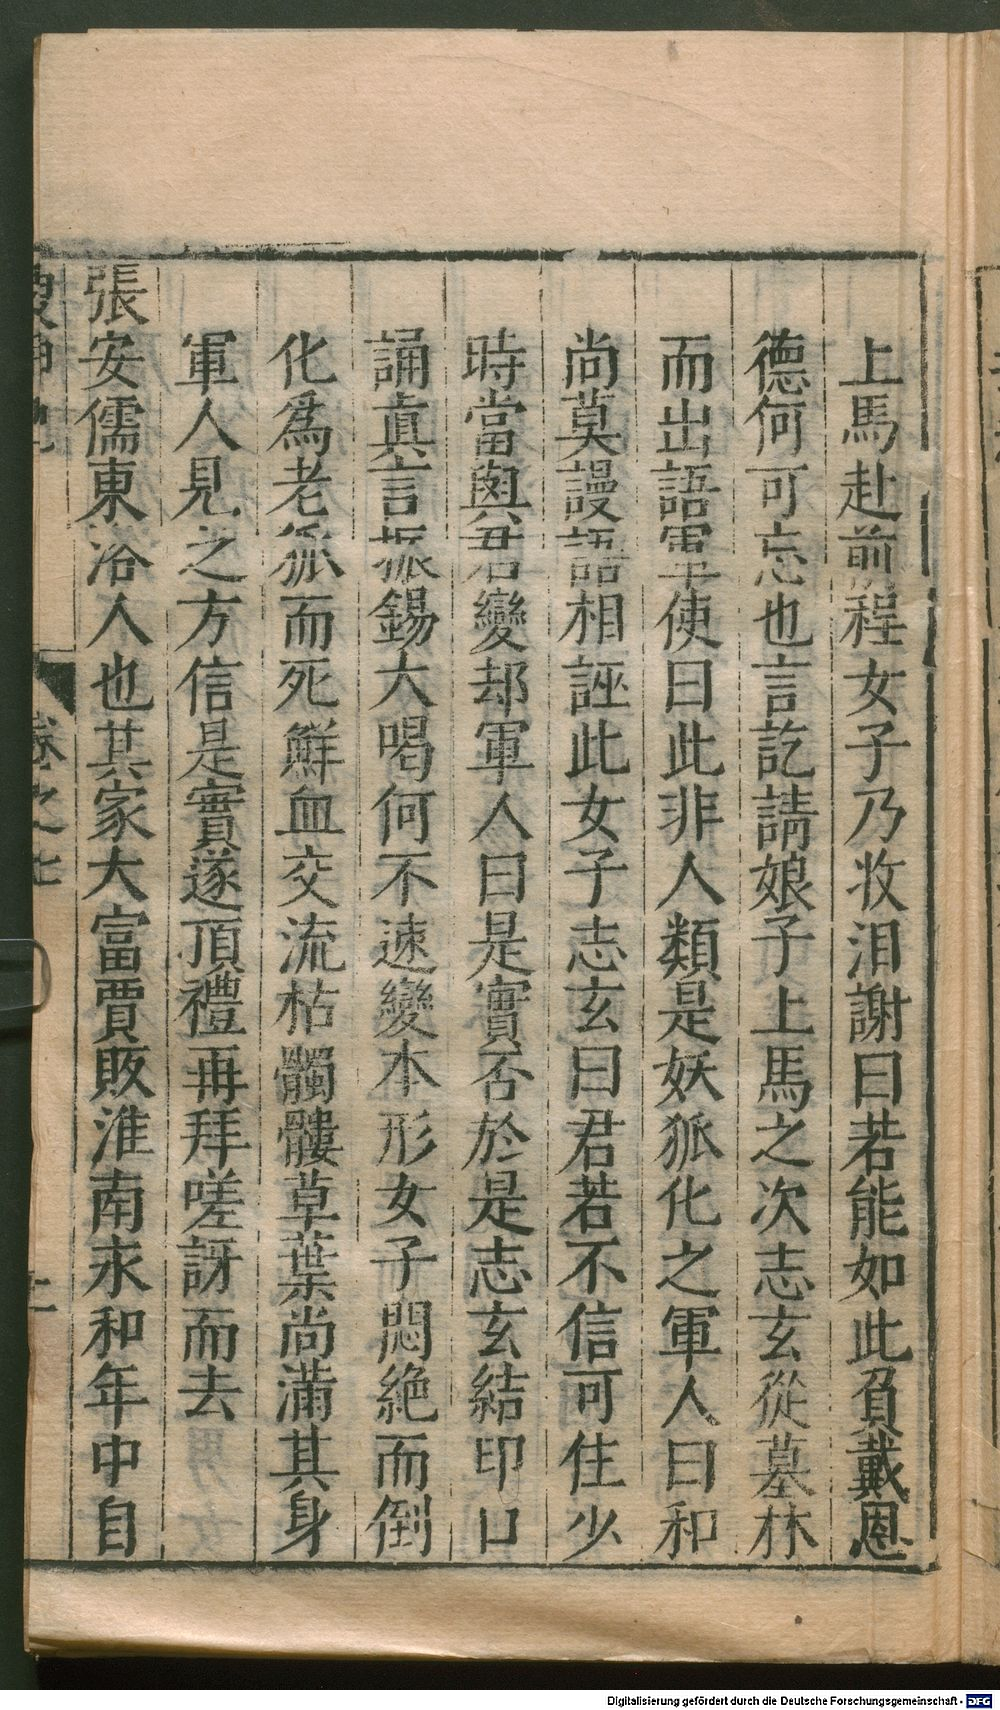 上馬赴前程女子乃收泪謝曰若能如此負戴恩
德何可忘也言訖請娘子上馬之次志玄從墓林
而出語軍使曰此非人類是妖狐化之軍人曰和
尚莫謾語相誣此女子志玄曰君若不信可住少
時當與君變却軍人曰是實否於是志玄結印口
誦真言振錫大喝何不速變本形女子悶絶而倒
化為老狐而死鮮血交流枯髑髏草葉尚滿其身
軍人見之方信是實遂頂禮再拜嗟訝而去
張安儒東洛人也其家大富賈販淮南永和年中自
搜神記 卷之七 上
Digitalisierung gefördert durch die Deutsche Forschungsgemeinschaft - DFG